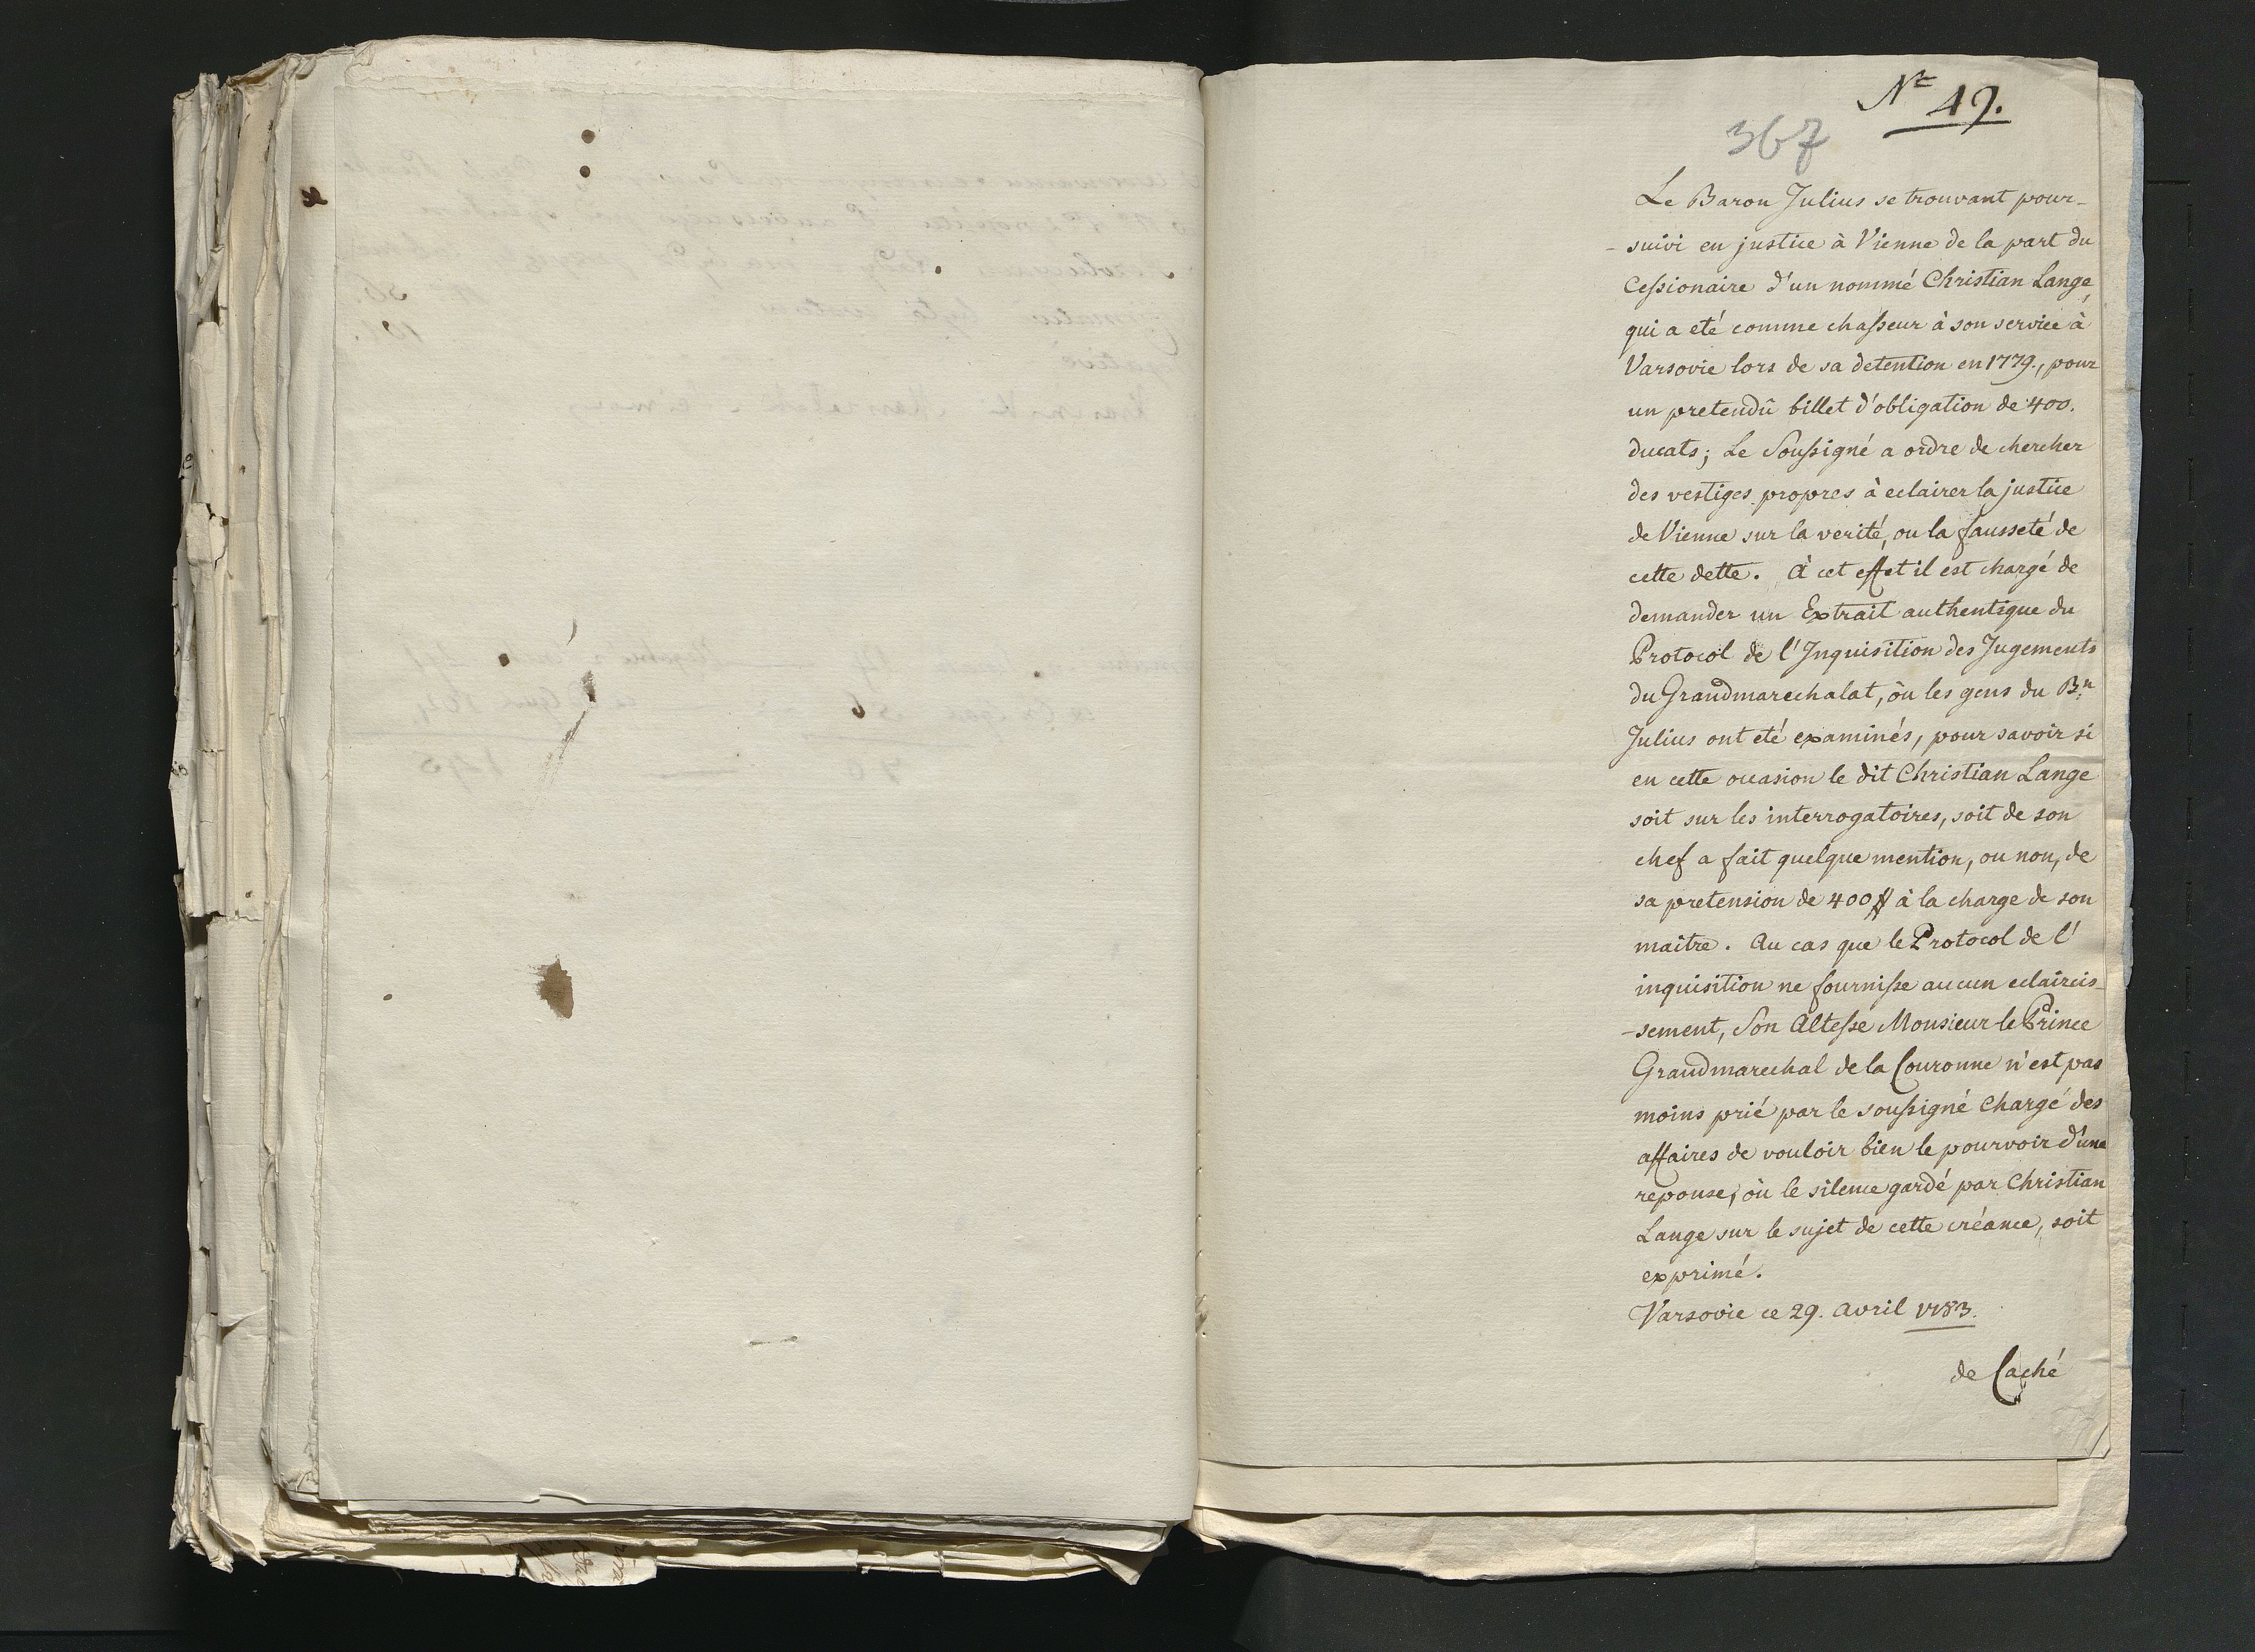 Nr 49.
367
Le Baron Julius se trouvant pour-
-suivi en justice à Vienne de la part du
Cessionaire d'un nommé Christian Lange,
qui a eté comme chasseur à son service à
Varsovie lors de sa detention en 1779., pour
un pretendû billet d'obligation de 400.
ducats; Le Soussigné a ordre de chercher
des vestiges propres à eclairer la justice
de Vienne sur la verité, ou la fausseté de
cette dette. à cet effet il est chargé de
demander un Extrait authentique du
Protocol de l'Inquisition des Jugements
du Grandmarechalat, òu les gens du Bn
Julius ont eté examinés, pour savoir si
en cette occasion le dit Christian Lange
soit sur les interrogatoires, soit de son
chef a fait quelque mention, ou non, de
sa pretension de 400 # à la charge de son
maitre. Au cas que le Protocol de l'
inquisition ne fournisse aucun eclaircis-
-sement, Son Altesse Monsieur le Prince
Grandmarechal de la Couronne n'est pas
moins prié par le soussigné Chargé des
affaires de vouloir bien le pourvoir d'une
reponse, òu le silence gardé par Christian
Lange sur le sujet de cette créance, soit
exprimé.
Varsovie ce 29. Avril 1783.
de Caché